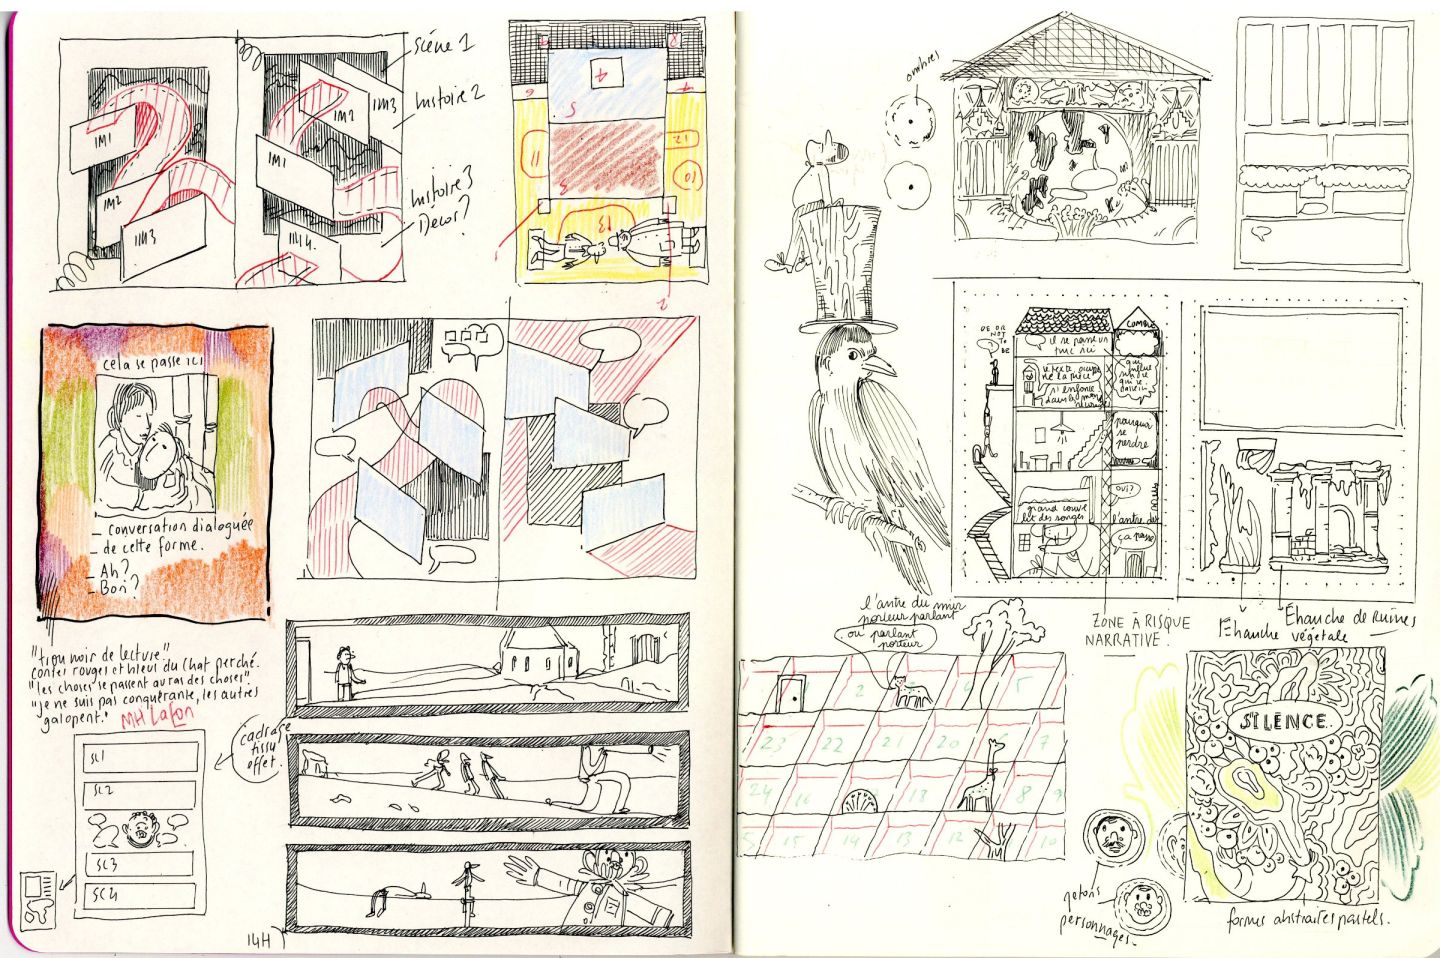 Scène 1
IM1
IM2
IM3
IM1
IM2
IM3
IM4.
histoire 2
histoire 3
Decor?
4
5
3
6
8
7
11
12
10
13
2
cela se passe ici
_ conversation dialoguée
_ de cette forme.
_ Ah?
_ Bon?
"trou noir de lecture"
contes rouges et bleus du Chat perché.
"les choses se passent au ras des choses"
"je ne suis pas conquérante, les autres
galopent."
MH Lafon
cadrage
tissu
offet.
SC1
SC2
SC3
SC4
14H
ombres
BE OR
NOT
TO
BE
il se passe un
truc ici
COMBLE
le texte occupe
la pièce
s'enfonce
dans la
qui
pourquoi
se
perdre
oui?
grand couvre
lit des songes
l'antre du
ça passe
ZONE À RISQUE
NARRATIVE.
Ehanche
végétale
Éhanche de Ruines
l'antre du mur
porteur parlant
ou parlant
porteur
2
5
23
22
21
20
7
24
16
18
8
9
15
14
13
12
10
SILENCE..
jetons
personnages_
formes abstraites pastels.